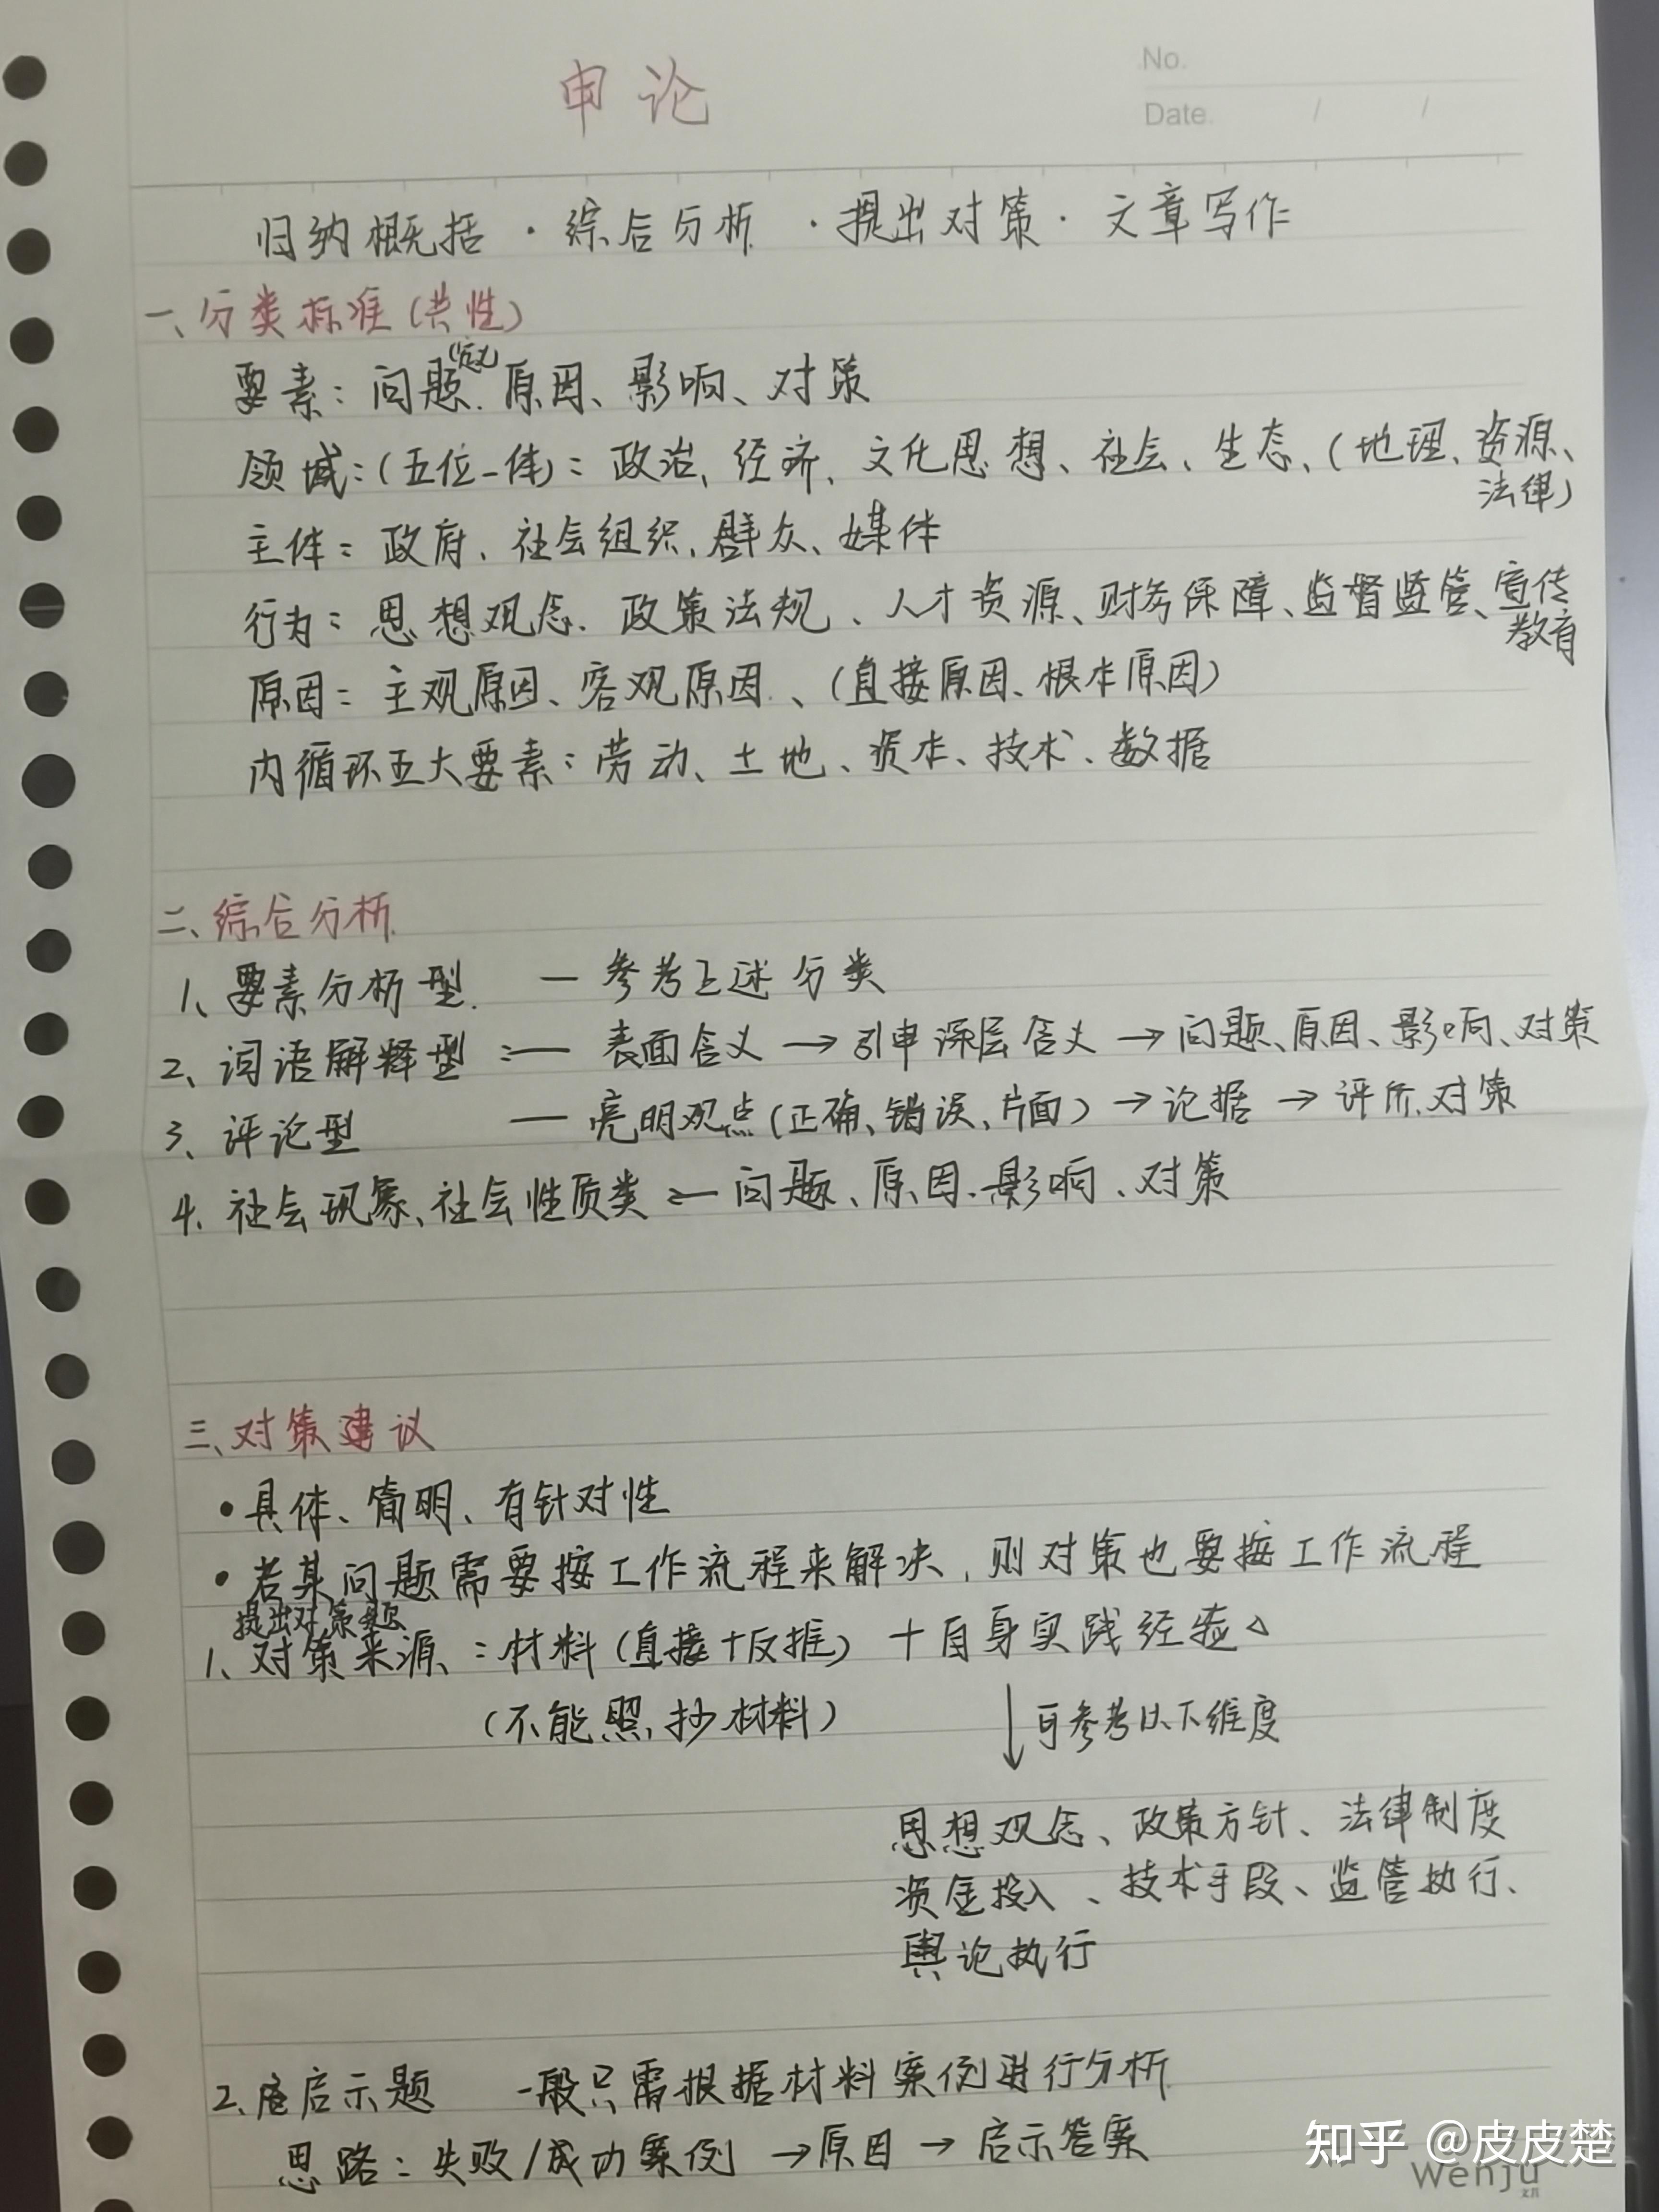 No.
申论
Date. / /
归纳概括·综合分析·提出对策·文章写作
一、分类标准(共性)
要素:问题、原因、影响、对策
领域:(五位一体):政治、经济、文化思想、社会、生态、(地理、资源、
法律)
主体:政府、社会组织、群众、媒体
行为:思想观念、政策法规、人才资源、财务保障、监督监管、宣传
教育
原因:主观原因、客观原因、(直接原因、根本原因)
内循环五大要素:劳动、土地、资本、技术、数据
二、综合分析
1、要素分析型 — 参考上述分类
2、词语解释型:— 表面含义→引申深层含义→问题、原因、影响、对策
3、评论型 — 亮明观点(正确、错误、片面)→论据→评价、对策
4、社会现象、社会性质类:— 问题、原因、影响、对策
三、对策建议
·具体、简明、有针对性
·若某问题需要按工作流程来解决,则对策也要按工作流程
提出对策题
1、对策来源:材料(直接+反推)+自身实践经验△
(不能照抄材料) ↓可参考以下维度
思想观念、政策方针、法律制度
资金投入、技术手段、监管执行、
舆论执行
2、启示题 一般只需根据材料案例进行分析
思路:失败/成功案例→原因→启示答案
知乎 @皮皮楚
Wenju
文具